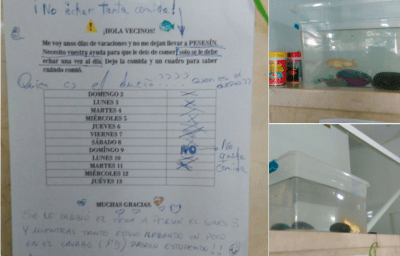 ¡No echar tanta comida!
¡HOLA VECINOS!
Me voy unos días de vacaciones y no me dejan llevar a PESESÍN.
Necesito vuestra ayuda para que le deis de comer, solo se le debe
echar una vez al día. Dejo la comida y un cuadro para saber
cuándo comió.
Quien es el dueño????
DOMINGO 2
LUNES 3
MARTES 4
MIÉRCOLES 5
JUEVES 6
VIERNES 7
SÁBADO 8
DOMINGO 9 NO No
LUNES 10 queda
MARTES 11 comida
MIÉRCOLES 12
JUEVES 13
MUCHAS GRACIAS
Se le cambió el agua a el lunes 3
y mientras tanto estuvo nadando un poco
en el